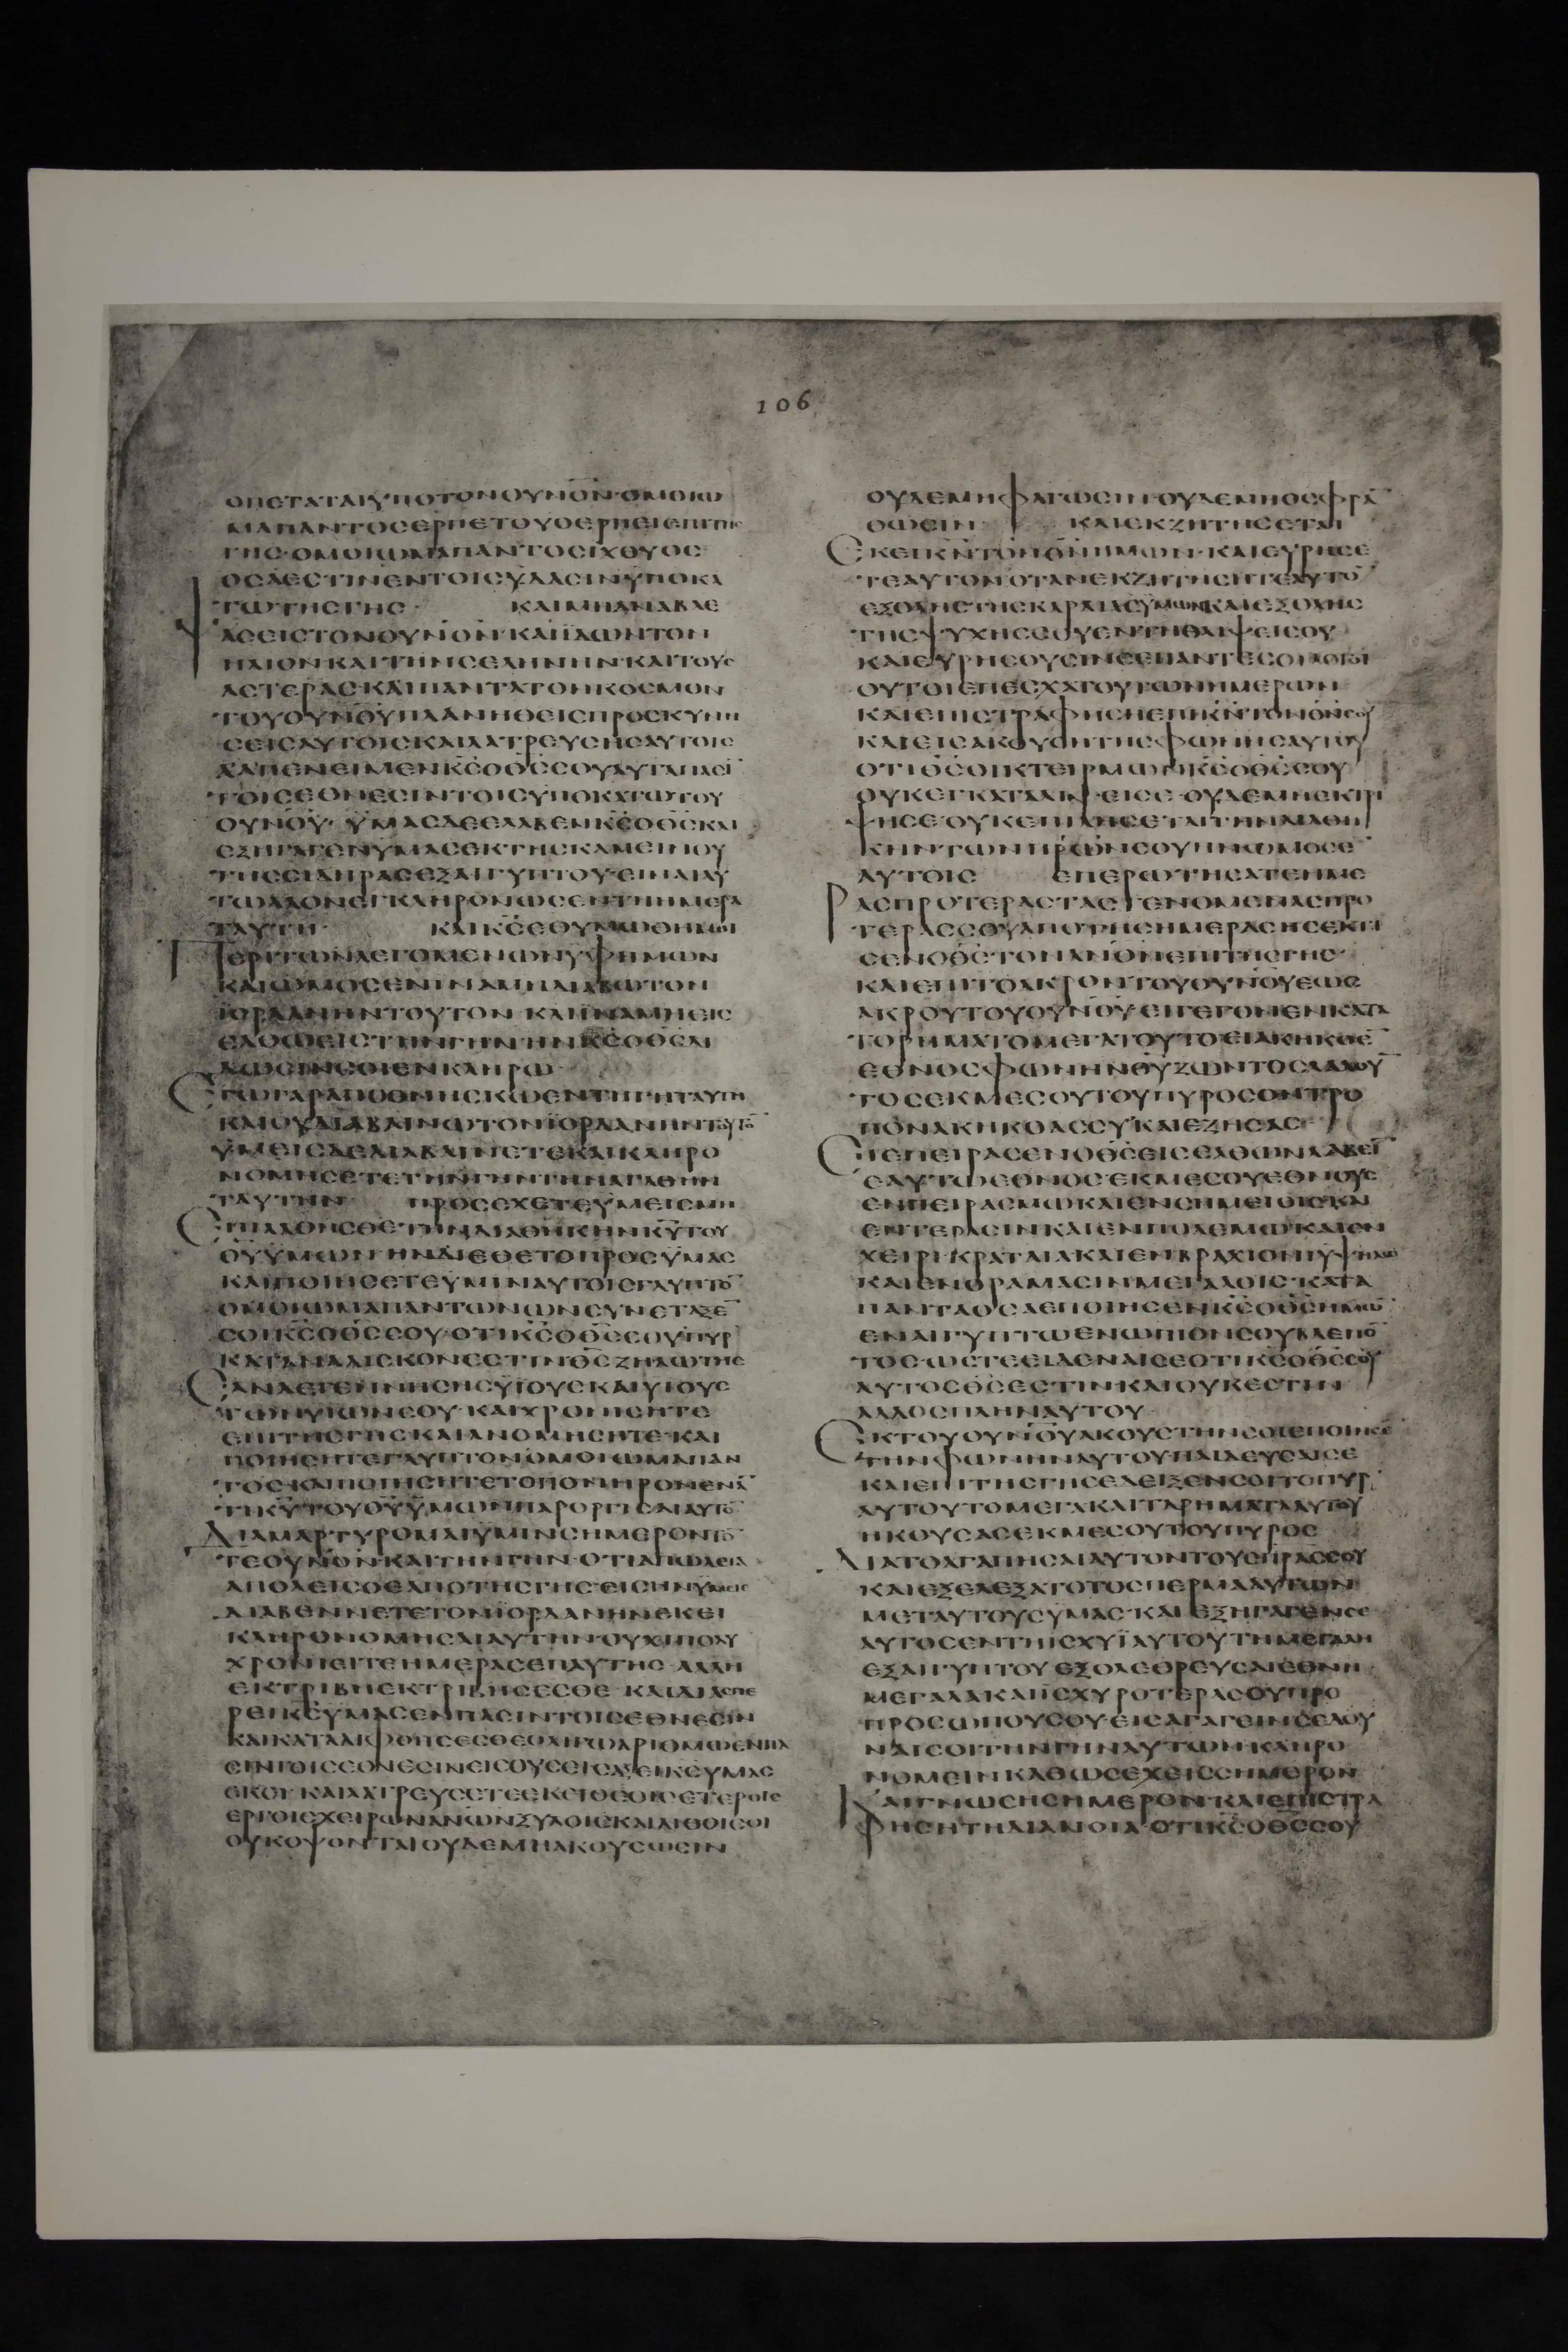 106
ΟΠΕΤΑΤΑΙΥΠΟΤΟΝΟΥΝΟΝ·ΟΜΟΙΩ
ΜΑΠΑΝΤΟϹΕΡΠΕΤΟΥΟΕΡΠΕΙΕΠΙΤΗϹ
ΓΗϹ·ΟΜΟΙΩΜΑΠΑΝΤΟϹΙΧΘΥΟϹ
ΟϹΑΕϹΤΙΝΕΝΤΟΙϹΥΔΑϹΙΝΫΠΟΚΑ
ΤΩΤΗϹΓΗϹ· ΚΑΙΜΗΑΝΑΒΛΕ
ΨΑϹΕΙϹΤΟΝΟΥΝΟΝ·ΚΑΙΪΔΩΝΤΟΝ
ΗΛΙΟΝΚΑΙΤΗΝϹΕΛΗΝΗΝ·ΚΑΙΤΟΥϹ
ΑϹΤΕΡΑϹ·ΚΑΙΠΑΝΤΑΤΟΝΚΟϹΜΟΝ
ΤΟΥΟΥΝΟΥΠΛΑΝΗΘΕΙϹΠΡΟϹΚΥΝΗ
ϹΕΙϹΑΥΤΟΙϹΚΑΙΛΑΤΡΕΥϹΗϹΑΥΤΟΙϹ
ΑΑΠΕΝΕΙΜΕΝΚ̅Ϲ̅ΟΘ̅Ϲ̅ϹΟΥΑΥΤΑΠΑϹΙ̅
ΤΟΙϹΕΘΝΕϹΙΝΤΟΙϹΥΠΟΚΑΤΩΤΟΥ
ΟΥΝΟΥ· ΫΜΑϹΔΕΕΛΑΒΕΝΚ̅Ϲ̅ΟΘ̅Ϲ̅ΚΑΙ
ΕΞΗΓΑΓΕΝΫΜΑϹΕΚΤΗϹΚΑΜΕΙΝΟΥ
ΤΗϹϹΙΔΗΡΑϹΕΞΑΙΓΥΠΤΟΥ·ΕΙΝΑΙΑΥ
ΤΩΛΑΟΝΕΓΚΛΗΡΟΝΩϹΕΝΤΗΗΜΕΡΑ
ΤΑΥΤΗ· ΚΑΙΚ̅Ϲ̅ΕΘΥΜΩΘΗΜΟΙ
ΠΕΡΙΤΩΝΛΕΓΟΜΕΝΩΝΥΦΗΜΩΝ
ΚΑΙΩΜΟϹΕΝΙΝΑΜΗΔΙΑΒΩΤΟΝ
ΪΟΡΔΑΝΗΝΤΟΥΤΟΝ ΚΑΙΪΝΑΜΗΕΙϹ
ΕΛΘΩΕΙϹΤΗΝΓΗΝΗΝΚ̅Ϲ̅ΟΘ̅Ϲ̅ΔΙ
ΔΩϹΙΝϹΟΙΕΝΚΛΗΡΩ·
ΕΓΩΓΑΡΑΠΟΘΝΗϹΚΩΕΝΤΗΓΗΤΑΥΤΗ
ΚΑΙΟΥΔΙΑΒΑΙΝΩΤΟΝΪΟΡΔΑΝΗΝΤΟΥΤΟ̅
ΫΜΕΙϹΔΕΔΙΑΒΑΙΝΕΤΕΚΑΙΚΛΗΡΟ
ΝΟΜΗϹΕΤΕΤΗΝΓΗΝΤΗΝΑΓΑΘΗΝ
ΤΑΥΤΗΝ ΠΡΟϹΕΧΕΤΕΫΜΕΙϹΜΗ
ΕΠΙΛΑΘΗϹΘΕΤΗΝΔΙΑΘΗΚΗΝΚ̅Υ̅ΤΟΥ
Θ̅Υ̅ΫΜΩΝΗΝΔΙΕΘΕΤΟΠΡΟϹΫΜΑϹ
ΚΑΙΠΟΙΗϹΕΤΕΥΜΙΝΑΥΤΟΙϹΓΛΥΠΤΟ̅
ΟΜΟΙΩΜΑΠΑΝΤΩΝΩΝϹΥΝΕΤΑΞΕ̅
ϹΟΙΚ̅Ϲ̅ΟΘ̅Ϲ̅ϹΟΥ·ΟΤΙΚ̅Ϲ̅ΟΘ̅Ϲ̅ϹΟΥΠΥΡ
ΚΑΤΑΝΑΛΙϹΚΟΝΕϹΤΙΝΘ̅Ϲ̅ΖΗΛΩΤΗϹ
ΕΑΝΔΕΓΕΝΝΗϹΗϹΫΙΟΥϹΚΑΙΥΙΟΥϹ
ΤΩΝΥΙΩΝϹΟΥ·ΚΑΙΧΡΟΝΙϹΗΤΕ
ΕΠΙΤΗϹΓΗϹΚΑΙΑΝΟΜΗϹΗΤΕ·ΚΑΙ
ΠΟΙΗϹΗΤΕΓΛΥΠΤΟΝΟΜΟΙΩΜΑΠΑΝ
ΤΟϹ·ΚΑΙΠΟΙΗϹΗΤΕΤΟΠΟΝΗΡΟΝΕΝΑ̅
ΤΙΚ̅Υ̅ΤΟΥΘ̅Υ̅ΫΜΩΝΠΑΡΟΡΓΙϹΑΙΑΥΤΟ̅
ΔΙΑΜΑΡΤΥΡΟΜΑΙΫΜΙΝϹΗΜΕΡΟΝΤΟ̅
ΤΕΟΥΝΟΝΚΑΙΤΗΝΓΗΝ·ΟΤΙΑΠΩΛΕΙΑ
ΑΠΟΛΕΙϹΘΕΑΠΟΤΗϹΓΗϹ·ΕΙϹΗΝΫΜΕΙϹ
ΔΙΑΒΕΝΝΕΤΕΤΟΝΪΟΡΔΑΝΗΝΕΚΕΙ
ΚΛΗΡΟΝΟΜΗϹΑΙΑΥΤΗΝ·ΟΥΧΙΠΟΛΥ
ΧΡΟΝΙΕΙΤΕΗΜΕΡΑϹΕΠΑΥΤΗϹ·ΑΛΛΗ
ΕΚΤΡΙΒΗΕΚΤΡΙΒΗϹΕϹΘΕ·ΚΑΙΔΙΑϹΠΕ
ΡΕΙΚ̅Ϲ̅ΥΜΑϹΕΝΠΑϹΙΝΤΟΙϹΕΘΝΕϹΙΝ
ΚΑΙΚΑΤΑΛΙΦΘΗϹΕϹΘΕΟΛΙΓΩΑΡΙΘΜΩΕΝΠΑ
ϹΙΝΤΟΙϹΕΘΝΕϹΙΝΕΙϹΟΥϹΕΙϹΑΞΕΙΚ̅Ϲ̅ΥΜΑϹ
ΕΚΕΙ·ΚΑΙΛΑΤΡΕΥϹΕΤΕΕΚΕΙΘΕΟΙϹΕΤΕΡΟΙϹ
ΕΡΓΟΙϹΧΕΙΡΩΝΑΝΩΝΞΥΛΟΙϹΚΑΙΛΙΘΟΙϹΟΙ
ΟΥΚΟΨΟΝΤΑΙΟΥΔΕΜΗΑΚΟΥϹΩϹΙΝ
ΟΥΔΕΜΗΦΑΓΩϹΙΝ·ΟΥΔΕΜΗΟϹΦΡΑ̅
ΘΩϹΙΝ· ΚΑΙΕΚΖΗΤΗϹΕΤΑΙ
ΕΚΕΙΚ̅Ν̅ΤΟΝΘ̅Ν̅ΗΜΩΝ·ΚΑΙΕΥΡΗϹΕ
ΤΕΑΥΤΟΝΟΤΑΝΕΚΖΗΤΗϹΗΤΕΑΥΤΟ̅
ΕΞΟΛΗϹΤΗϹΚΑΡΔΙΑϹΫΜΩΝΚΑΙΕΞΟΛΗϹ
ΤΗϹΨΥΧΗϹϹΟΥΕΝΤΗΘΛΙΨΕΙϹΟΥ
ΚΑΙΕΥΡΗϹΟΥϹΙΝϹΕΠΑΝΤΕϹΟΙΛΟΓΟΙ
ΟΥΤΟΙΕΠΕϹΧΑΤΟΥΤΩΝΗΜΕΡΩΝ
ΚΑΙΕΠΙϹΤΡΑΦΗϹΗΕΠΙΚ̅Ν̅ΤΟΝΘ̅Ν̅ϹΟΥ
ΚΑΙΕΙϹΑΚΟΥϹΗΤΗϹΦΩΝΗϹΑΥΤΟΥ
ΟΤΙΘ̅Ϲ̅ΟΙΚΤΕΙΡΜΩΝΚ̅Ϲ̅ΟΘ̅Ϲ̅ϹΟΥ
ΟΥΚΕΓΚΑΤΑΛΙΨΕΙϹΕ·ΟΥΔΕΜΗΕΚΤΡΙ
ΨΗϹΕ·ΟΥΚΕΠΙΛΗϹΕΤΑΙΤΗΝΔΙΑΘΗ
ΚΗΝΤΩΝΠΡ̅ΩΝϹΟΥΗΝΩΜΟϹΕ
ΑΥΤΟΙϹ ΕΠΕΡΩΤΗϹΑΤΕΗΜΕ
ΡΑϹΠΡΟΤΕΡΑϹΤΑϹΓΕΝΟΜΕΝΑϹΠΡΟ
ΤΕΡΑϹϹΟΥΑΠΟΤΗϹΗΜΕΡΑϹΗϹΕΚΤΙ
ϹΕΝΟΘ̅Ϲ̅ΤΟΝΑΝΟΝΕΠΙΤΗϹΓΗϹ·
ΚΑΙΕΠΙΤΟΑΚΡΟΝΤΟΥΟΥΝΟΥΕΩϹ
ΑΚΡΟΥΤΟΥΟΥΝΟΥ·ΕΙΓΕΓΟΝΕΝΚΑΤΑ
ΤΟΡΗΜΑΤΟΜΕΓΑΤΟΥΤΟΕΙΑΚΗΚΟΕ̅
ΕΘΝΟϹΦΩΝΗΝΘ̅Υ̅ΖΩΝΤΟϹΛΑΛΟΥ̅
ΤΟϹΕΚΜΕϹΟΥΤΟΥΠΥΡΟϹΟΝΤΡΟ
ΠΟΝΑΚΗΚΟΑϹϹΥΚΑΙΕΖΗϹΑϹ·
ΕΙΕΠΕΙΡΑϹΕΝΟΘ̅Ϲ̅ΕΙϹΕΛΘΩΝΛΑΒΕΙ̅
ΕΑΥΤΩΕΘΝΟϹΕΚΜΕϹΟΥΕΘΝΟΥϹ
ΕΝΠΕΙΡΑϹΜΩΚΑΙΕΝϹΗΜΕΙΟΙϹΚΑΙ
ΕΝΤΕΡΑϹΙΝΚΑΙΕΝΠΟΛΕΜΩΚΑΙΕΝ
ΧΕΙΡΙΚΡΑΤΑΙΑΚΑΙΕΝΒΡΑΧΙΟΝΙΥΨΗΛΩ
ΚΑΙΕΝΟΡΑΜΑϹΙΝΜΕΓΑΛΟΙϹ·ΚΑΤΑ
ΠΑΝΤΑΟϹΑΕΠΟΙΗϹΕΝΚ̅Ϲ̅ΟΘ̅Ϲ̅ΗΜΩ̅
ΕΝΑΙΓΥΠΤΩΕΝΩΠΙΟΝϹΟΥΒΛΕΠΟ̅
ΤΟϹ·ΩϹΤΕΕΙΔΕΝΑΙϹΕΟΤΙΚ̅Ϲ̅ΟΘ̅Ϲ̅ϹΟΥ
ΑΥΤΟϹΘ̅Ϲ̅ΕϹΤΙΝ·ΚΑΙΟΥΚΕϹΤΙΝ
ΑΛΛΟϹΠΛΗΝΑΥΤΟΥ
ΕΚΤΟΥΟΥΝΟΥΑΚΟΥϹΤΗΝϹΟΙΕΠΟΙΗϹΕ
ΤΗΝΦΩΝΗΝΑΥΤΟΥΠΑΙΔΕΥϹΑΙϹΕ
ΚΑΙΕΠΙΤΗϹΓΗϹΕΔΕΙΞΕΝϹΟΙΤΟΠΥΡ
ΑΥΤΟΥΤΟΜΕΓΑΚΑΙΤΑΡΗΜΑΤΑΑΥΤΟΥ
ΗΚΟΥϹΑϹΕΚΜΕϹΟΥΤΟΥΠΥΡΟϹ
ΔΙΑΤΟΑΓΑΠΗϹΑΙΑΥΤΟΝΤΟΥϹΠΡ̅ΑϹϹΟΥ
ΚΑΙΕΞΕΛΕΞΑΤΟΤΟϹΠΕΡΜΑΑΥΤΩΝ
ΜΕΤΑΥΤΟΥϹΫΜΑϹ·ΚΑΙΕΞΗΓΑΓΕΝϹΕ
ΑΥΤΟϹΕΝΤΗΙϹΧΥΪΑΥΤΟΥΤΗΜΕΓΑΛΗ
ΕΞΑΙΓΥΠΤΟΥΕΞΟΛΕΘΡΕΥϹΑΙΕΘΝΗ
ΜΕΓΑΛΑΚΑΙΪϹΧΥΡΟΤΕΡΑϹΟΥΠΡΟ
ΠΡΟϹΩΠΟΥϹΟΥ·ΕΙϹΑΓΑΓΕΙΝϹΕΔΟΥ
ΝΑΙϹΟΙΤΗΝΓΗΝΑΥΤΩΝ·ΚΛΗΡΟ
ΝΟΜΕΙΝΚΑΘΩϹΕΧΕΙϹϹΗΜΕΡΟΝ
ΚΑΙΓΝΩϹΗϹΗΜΕΡΟΝ·ΚΑΙΕΠΙϹΤΡΑ
ΦΗϹΗΤΗΔΙΑΝΟΙΑ·ΟΤΙΚ̅Ϲ̅ΟΘ̅Ϲ̅ϹΟΥ